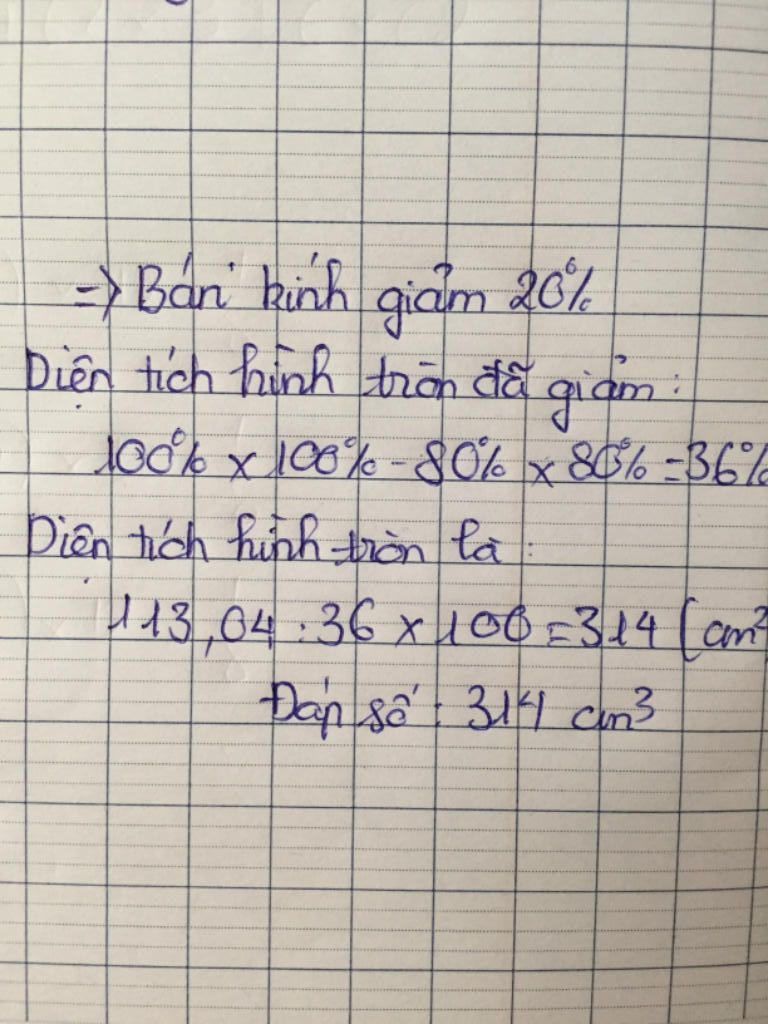 => Bán kính giảm 20%
Diện tích hình tròn đã giảm:
100% x 100% - 80% x 80% = 36%
Diện tích hình tròn là:
113,04 : 36 x 100 = 314 (cm²
Đáp số: 314 cm³